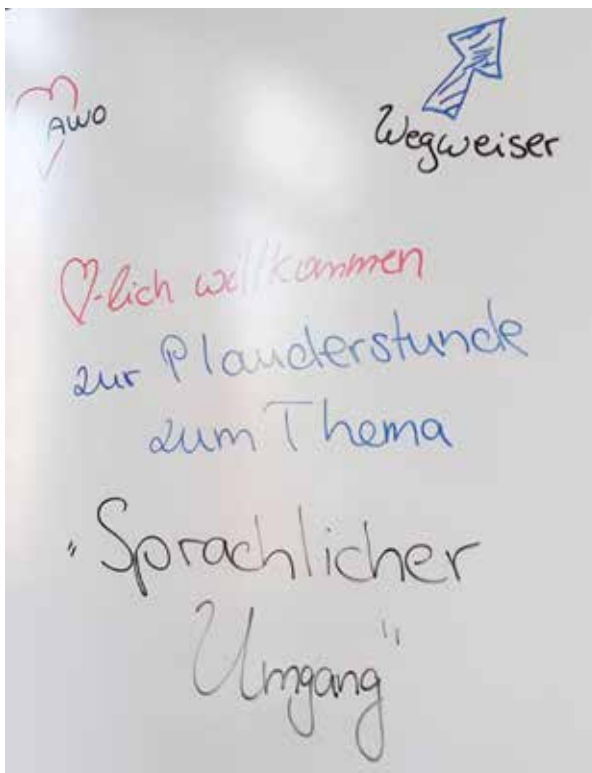 AWO
Wegweiser
♡-lich willkommen
zur Plauderstunde
zum Thema
"Sprachlicher
Umgang"